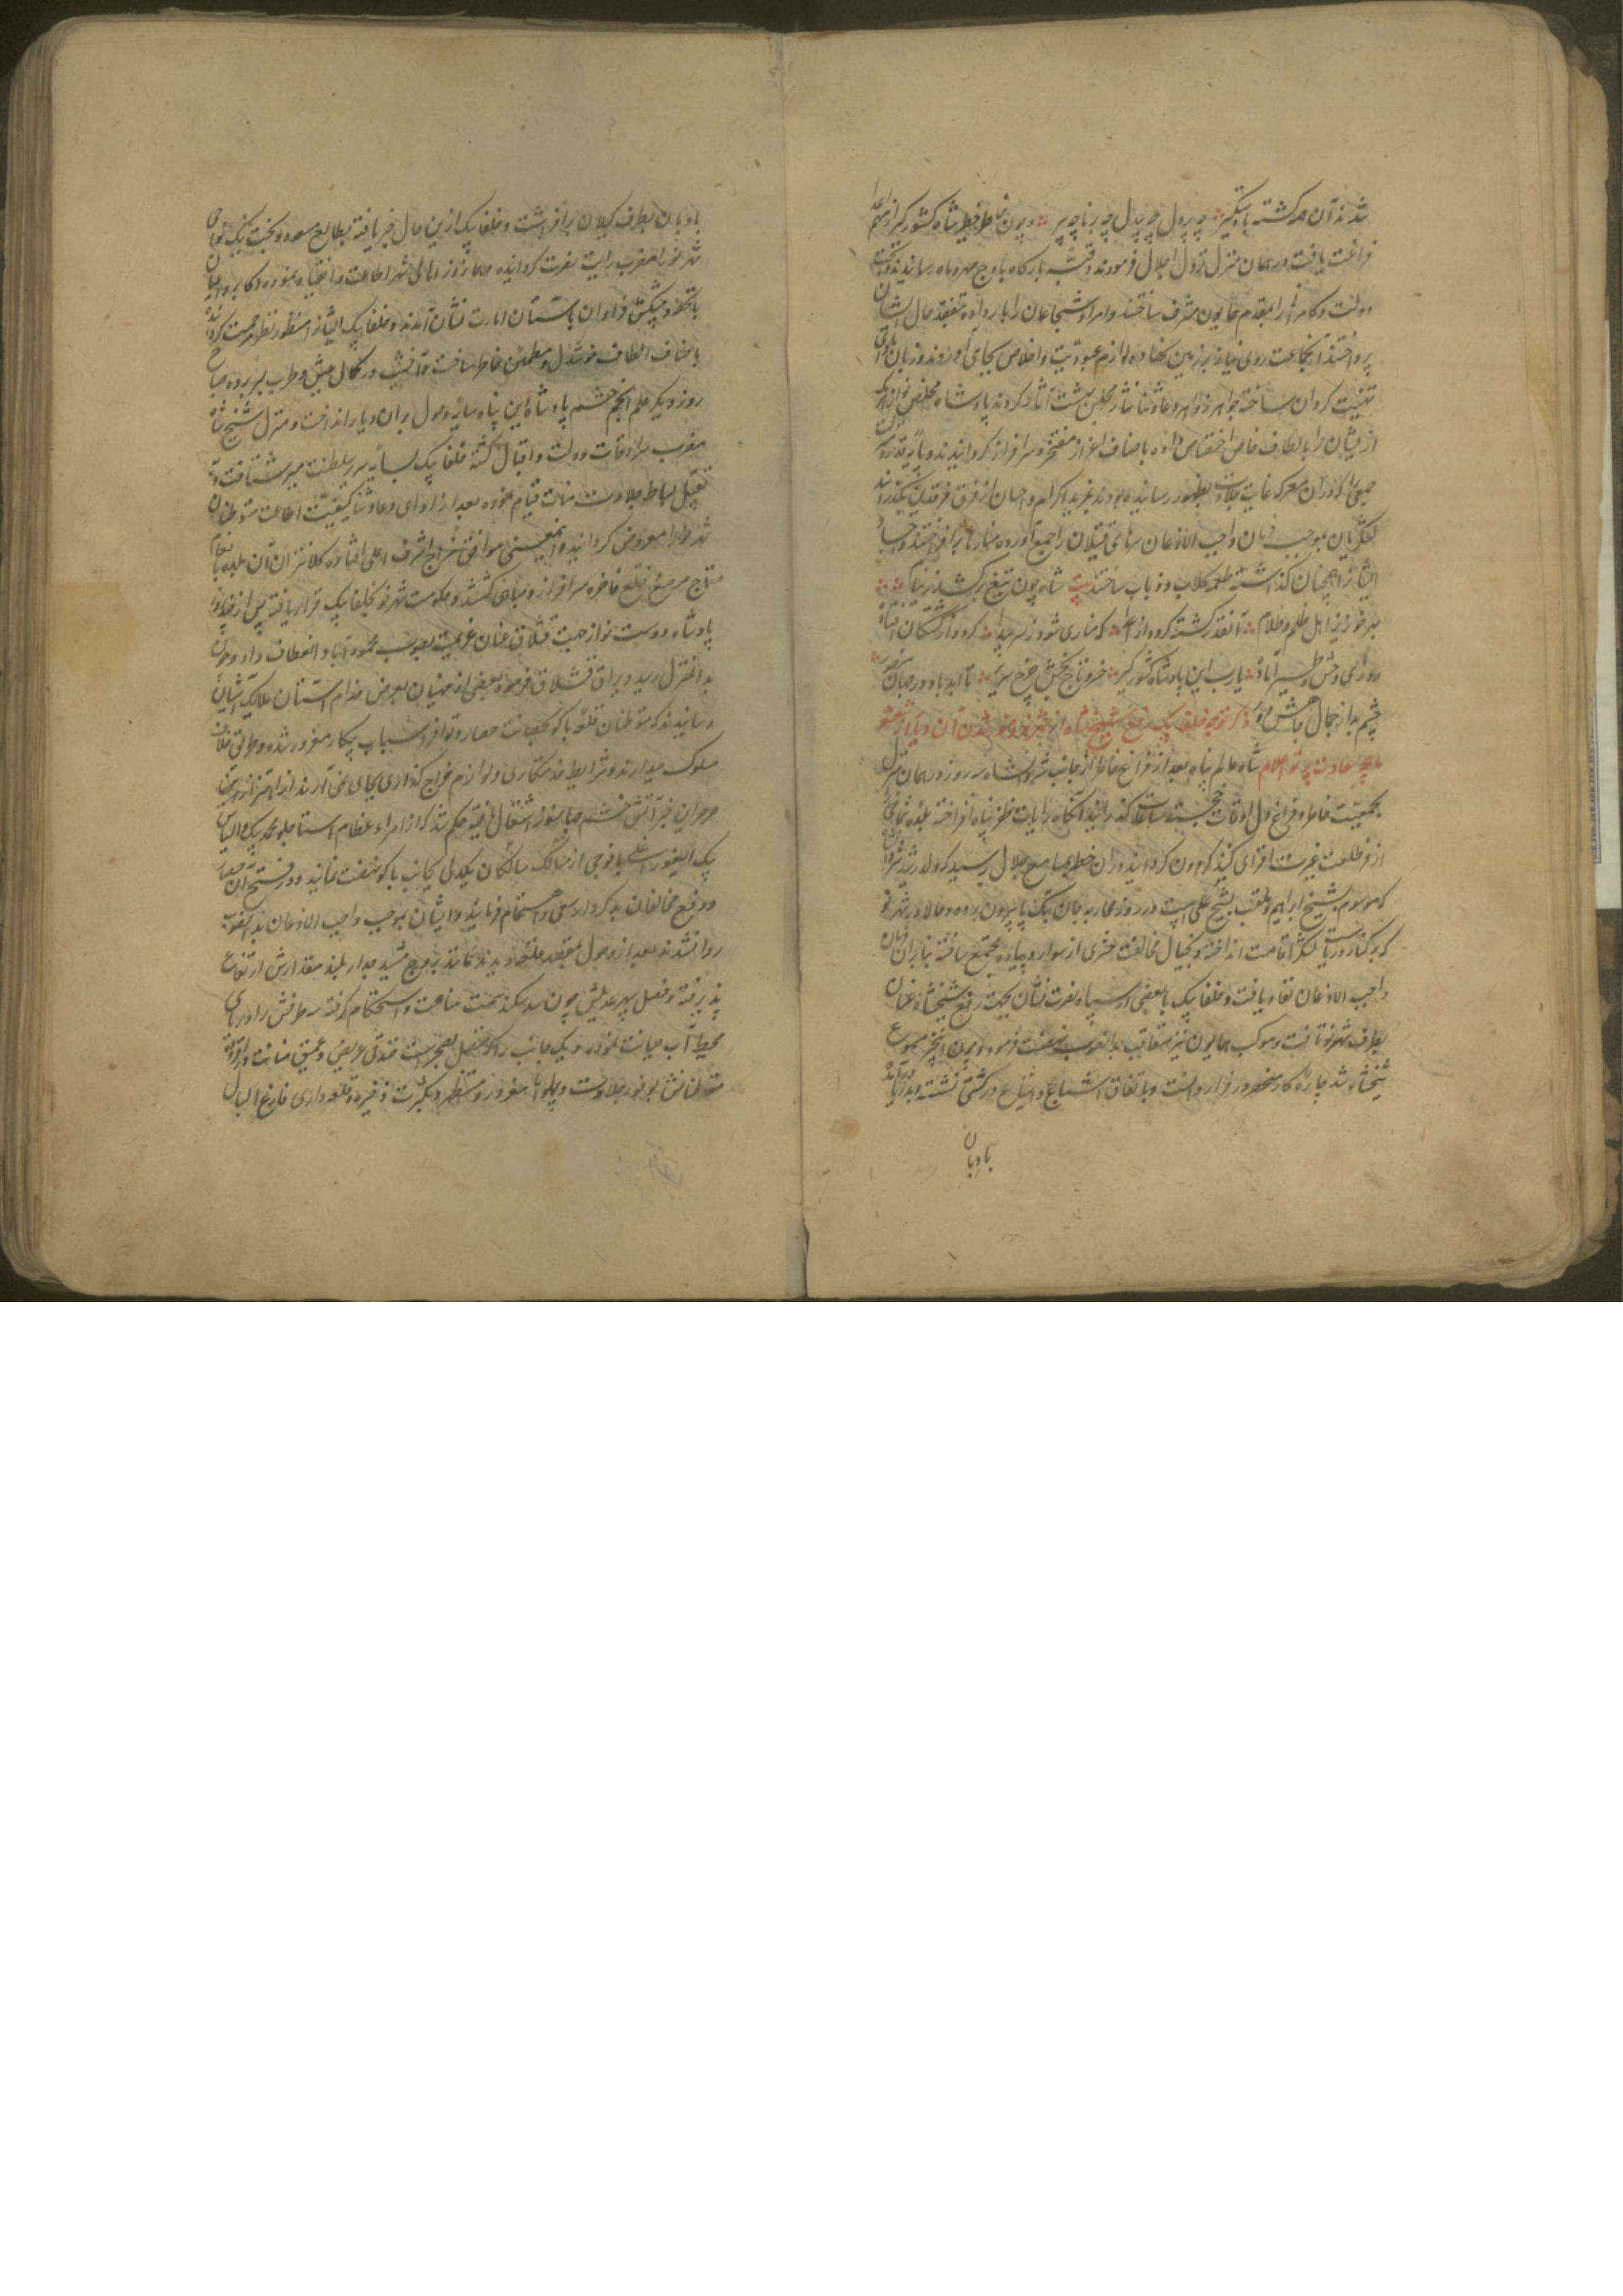 شدند آن همه کشته یا دستگیر چه پر دل چه بد دل چه برنا چه پیر و چون خاطر خطیر شاه کشورگیر از مهم اعدا
فراغت یافت در همان منزل نزول اجلال فرمودند و قبه بارگاه باوج مهر و ماه رسانیدند و تخت
دولت و کامرانی را بمقدم همایون مشرف ساختند و امرا و شجاعان را بار داده بتفقد حال ایشان
پرداختند آنجماعت روی نیاز بر زمین نهاده لوازم عبودیت و اخلاص بجای آوردند و زبان
تهنیت کردان ساخته جواهر زواهر دعا و ثنا نثار مجلس بهشت آثار کردند پادشاه مخلص نواز هر یک
از ایشان را بالطاف خاص اختصاص داده باصناف اعزاز مفتخر و سرافراز گردانیدند و
جمعی را که در آن معرکه غایت جلادت بظهور رسانیده بودند بمزید اکرام و احسان از فرق فرقدین بگذرانیدند
لشکریان بموجب فرمان واجب الاذعان سرهای قتیلان را جمع آورده منارها برافراختند و اجساد
ایشان را همچنان گذاشته طعمه کلاب و ذباب ساختند بیت شاه چون تیغ برکشید ز نیام
بهر خونریز اهل ظلم و ظلام آنقدر کشته کرد از اعدا که مناری شود ز سر پیدا کرد و از کشتگان افتاده
روزی وحش و طیر آماده یارب این پادشاه کشورگیر خسرو تاج بخش چرخ سریر تا ابد باد در جهان
چشم بد از جمال جاهش دور ذکر توجه خلفا بیک بدفع شیخ شاه از شهر نو و منور شدن آن دیار از اشعه
ماهچه سعادت پرتو اعلام شاه عالم پناه بعد از فراغ خاطر از جانب شروانشاه سه روز در همان منزل
بجمعیت خاطر و فراغ دل اوقات خجسته ساعات گذرانید آنگاه رایات ظفر پناه افراخته بلده شماخی
از فر طلعت غیرت افزای گنبد گردون گردانید و در آن خطه بمسامع جلال رسید که ولد رشید شروانشاه
که موسوم بشیخ ابراهیم و ملقب بشیخ شاه است در روز محاربه جان بتک پا بیرون برده و حالا در شهر نو
که بر کنار دریاست لنگر اقامت انداخته و بخیال مخالفت حشری از سوار و پیاده مجتمع ساخته بنابر آن فرمان
واجب الاذعان نفاذ یافت و خلفا بیک با بعضی از سپاه نصرت نشان بجهت دفع شیخشاه عنان
بطرف شهر نو تافت و موکب همایون نیز متعاقب بدانصوب نهضت فرمود و چون این خبر مسموع
شیخشاه شد چاره کار منحصر در فرار دانست و باتفاق اشیاع و اتباع در کشتی نشسته و بدریا درآمد
بادبان
بادبان بطرف گیلان برافراشت و خلفا بیک ازین حال خبر یافته بطالع مسعود و بخت نیک نواحی
شهر نو را مضرب رایت نصرت گردانیده همان روز اهالی شهر اطاعت و انقیاد نموده اکابر و اعیان
با تحف و پیشکش فراوان بآستان امارت نشان آمدند و خلفا بیک ایشان را منظور نظر مرحمت گردانیده
باصناف الطاف خوشدل و مطمئن خاطر ساخت و آنشب در کمال عیش و طرب بسر برده صباح
روز دیگر علم انجم حشم پادشاه دین پناه سایه وصول بر آن دیار انداخت و منزل شیخ شاه
مضرب سرادقات دولت و اقبال گشته خلفا بیک بسایه سریر سلطنت مصیر شتافت و به
تقبیل بساط جلادت منزلت قیام نموده بعد از ادای دعا و ثنا کیفیت اطاعت متوطنان
شهر نو را معروض گردانید و اینمعنی موافق مزاج اشرف اعلی افتاده کلانتران آن بلده بانعام
تاج مرصع و خلع فاخره سرافراز و مباهی گشتند و حکومت شهر نو بخلفا بیک قرار یافته پس از چند روز
پادشاه دوست نواز جهت قشلاق عنان عزیمت بصوب محمودآباد انعطاف داد و چون
بدانمنزل رسید و یراق قشلاق فرمود بعضی از منهیان بعرض خدام آستان ملایک آشیان
رسانیدند که متوطنان قلعه باکو بحصانت حصار و توافر اسباب پیکار مغرور شده و طریق خلاف
مسلوک میدارند و شرایط خدمتکاری و لوازم خراج گذاری بجای نمی‌آرند از اهتزاز
صرصر این خبر آتش خشم جهانسوز اشتعال یافته حکم شد که از امراء عظام استاجلو محمد بیک و الیاس
بیک ایغور اغلی با فوجی از سالکان یکدل بجانب باکو نهضت نمایند و در فتح آن حصار
و دفع مخالفان بدکردار سعی و اهتمام فرمایند و ایشان بموجب واجب الاذعان بدانصوب
روانه شدند بعد از وصول بمقصد قلعه دیدند که بروج مشید جدار بلند مقدارش ارتفاع
پذیرفته و فصیل سپهر عدیلش چون سد سکندر سمت مناعت و استحکام گرفته سه طرفش را دریای
محیط آب صیانت نموده و یک جانب را که متصل بصحراست خندقی عریض و عمیق
متوطنانش بوفور جلادت و پهلوانی مغرور و مستظهر و بکثرت ذخیره و قلعه داری فارغ البال